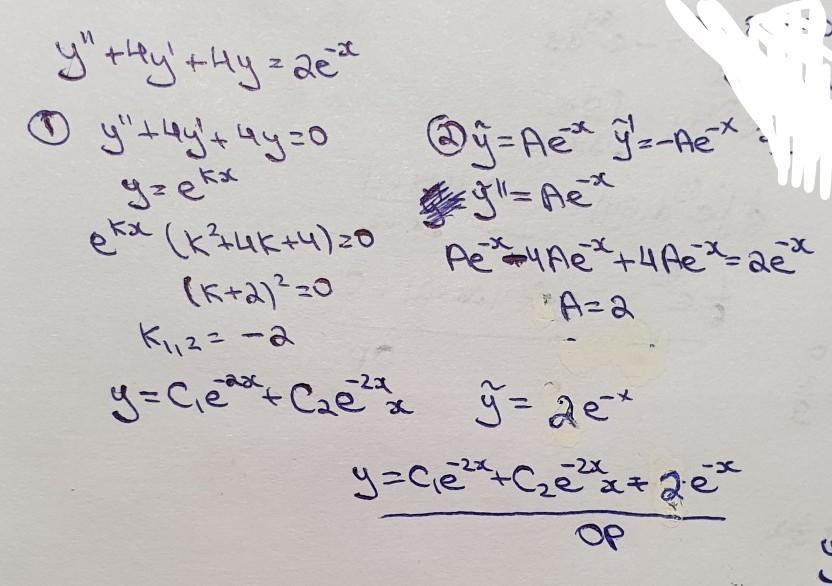 y'' + 4y' + 4y = 2e^{-x}
① y'' + 4y' + 4y = 0
y = e^{kx}
e^{kx} (k² + 4k + 4) = 0
(k + 2)² = 0
k_{1,2} = -2
y = C₁e^{-2x} + C₂e^{-2x} x
② ỹ = Ae^{-x} ỹ' = -Ae^{-x}
ỹ'' = Ae^{-x}
Ae^{-x} - 4Ae^{-x} + 4Ae^{-x} = 2e^{-x}
A = 2
ỹ = 2e^{-x}
y = C₁e^{-2x} + C₂e^{-2x} x + 2·e^{-x}
OP